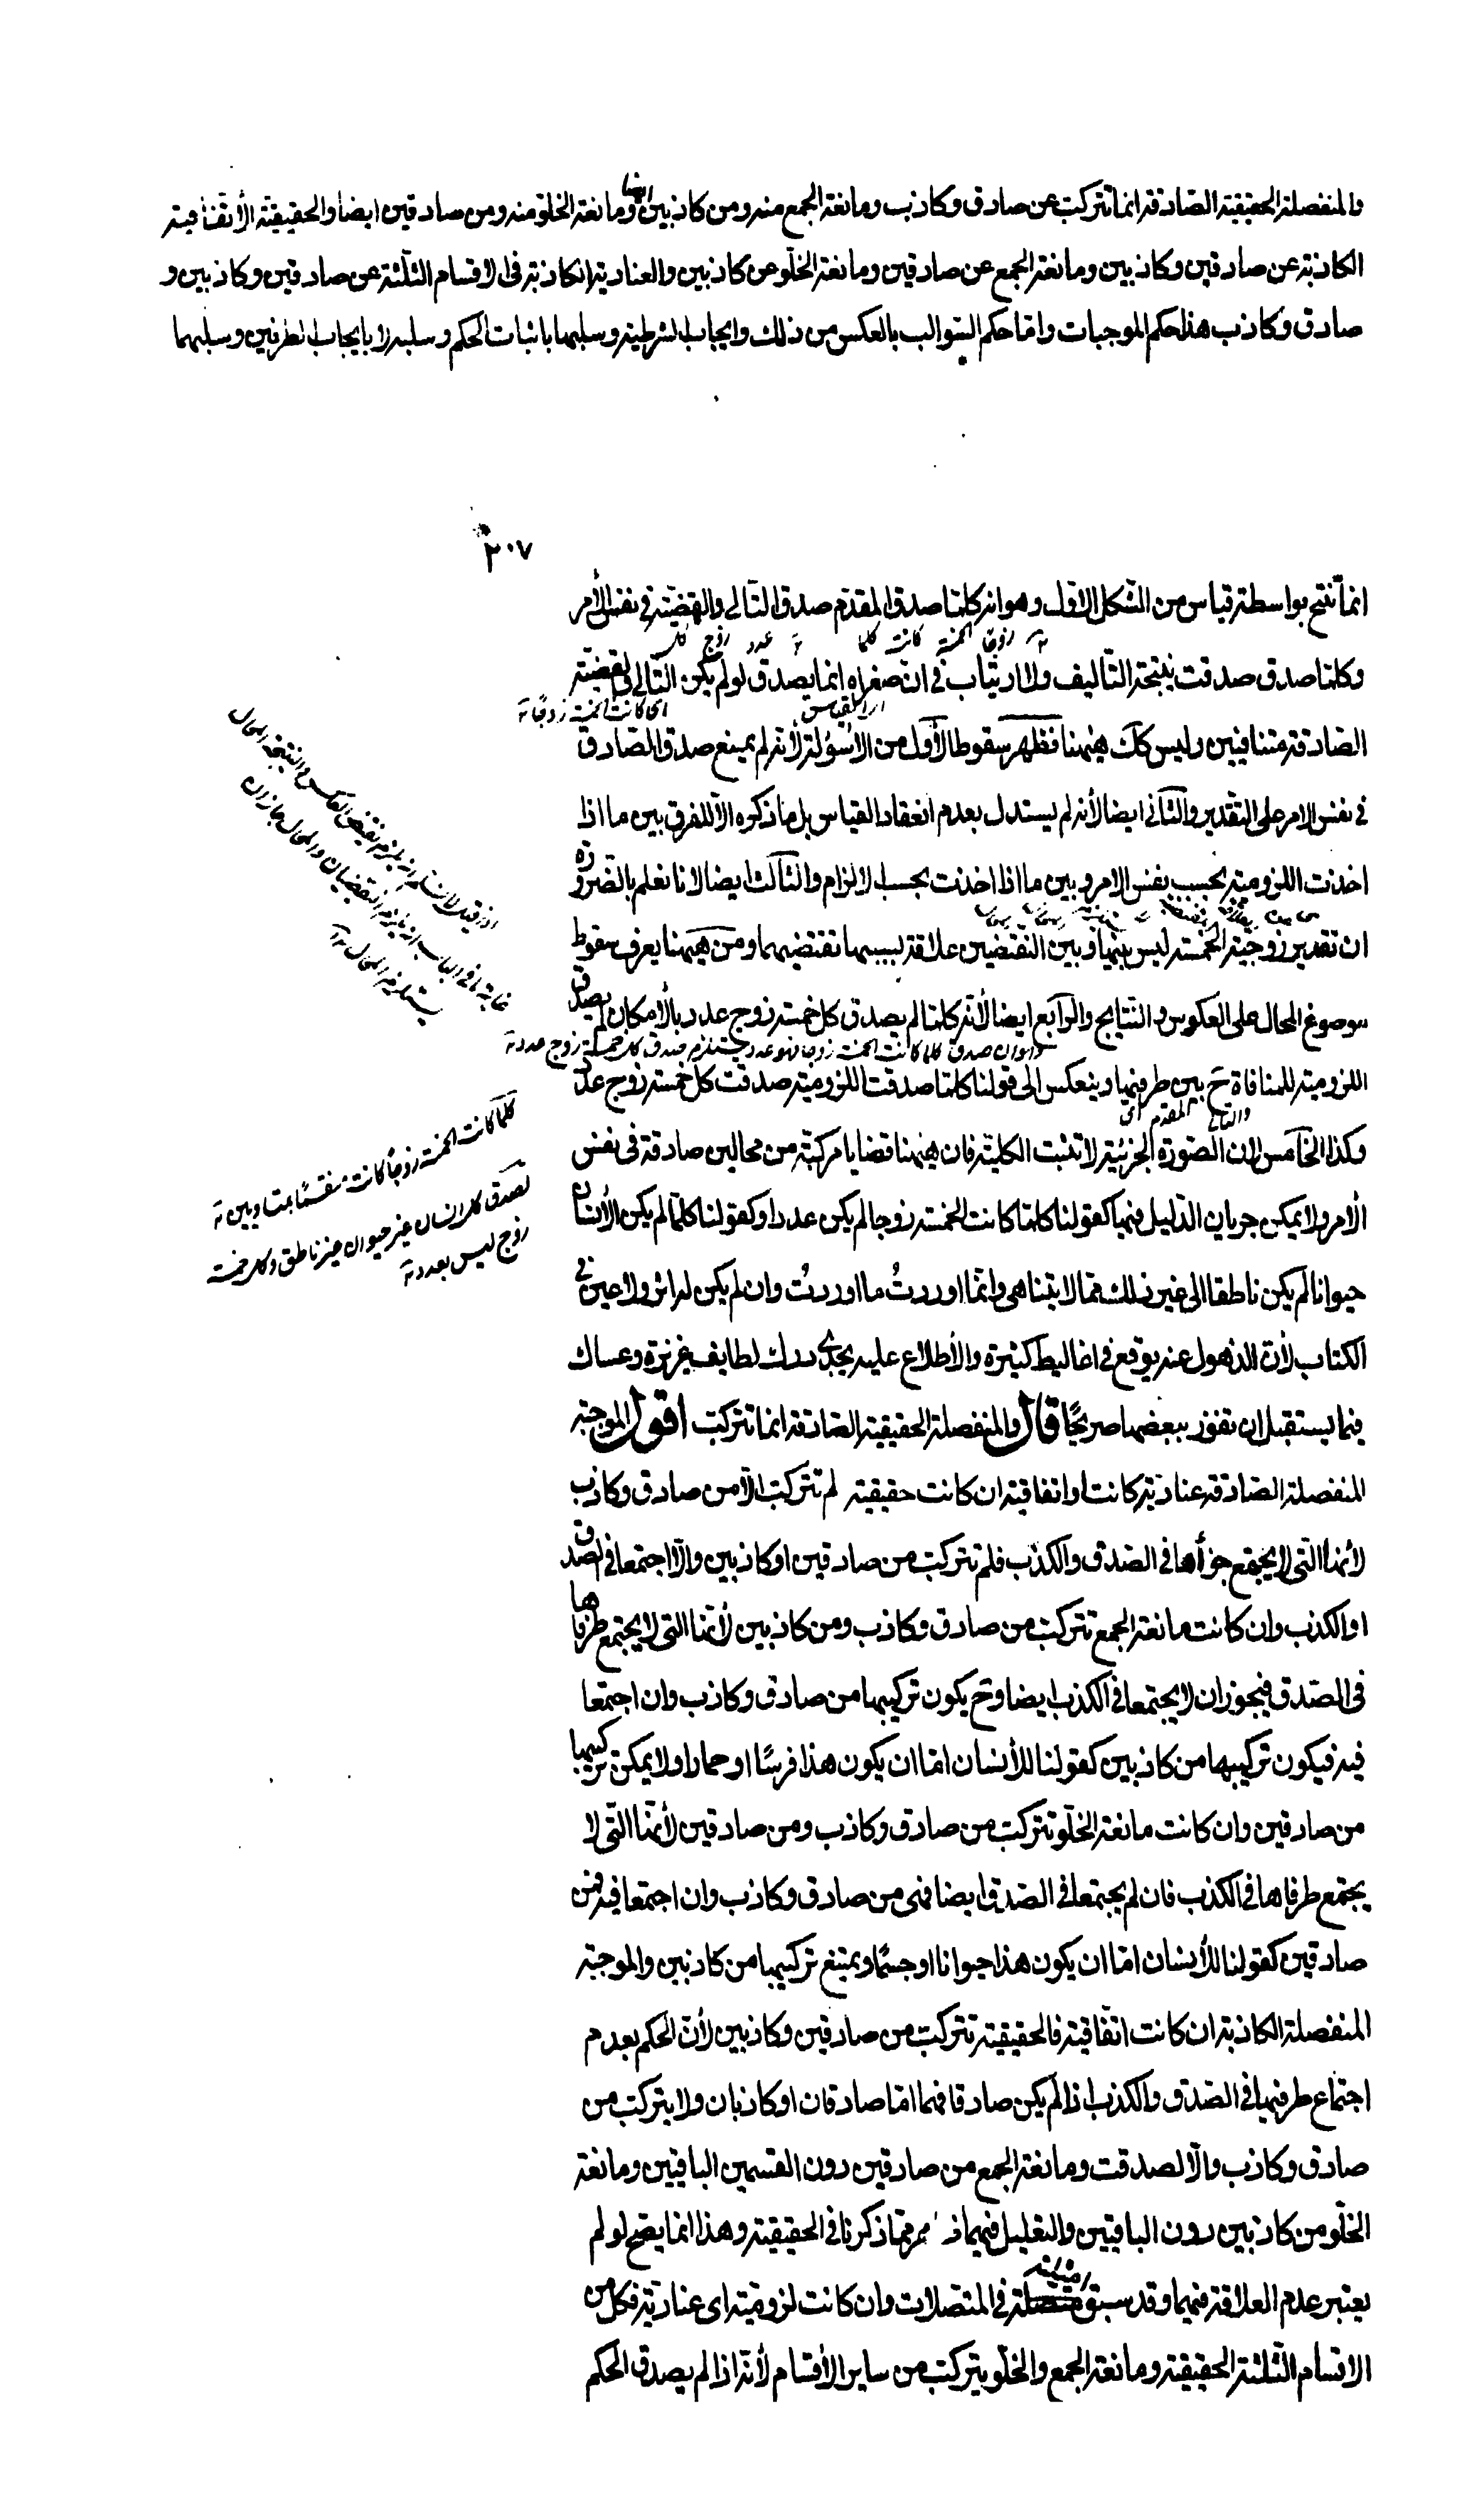 والمنفصلة الحقيقية الصادقة انما تتركب عن صادق وكاذب ومانعة الجمع منه ومن كاذبين ايضا ومانعة الخلو منه ومن صادقين ايضا والحقيقية الاتفاقية
الكاذبة عن صادقين وكاذبين ومانعة الجمع عن صادقين ومانعة الخلو عن كاذبين والعنادية الكاذبة في الاقسام الثلثة عن صادقين وكاذبين و
صادق وكاذب هذا حكم الموجبات واما حكم السوالب بالعكس من ذلك وايجاب الشرطية وسلبها باثبات الحكم وسلبه لا بايجاب الطرفين وسلبهما
٢٠٧
انما تنتج بواسطة قياس من الشكل الاول وهو انه كلما صدق المقدم صدق التالي والقضية في نفس الأمر
كل زوج عدد كلما كانت الخمسة زوجا
وكلما صدق صدقت نتيجة التأليف ولا ارتياب في ان صغراه انما يصدق لو لم يكن التالي والقضية
اي كانت الخمسة زوجا
الصادقة متنافيين وليس كك هيهنا فظهر سقوط الأول من الاسؤلة لأنه لم يمنع صدق الصادق
في نفس الامر على التقدير والثاني ايضا لأنه لم يستدل بعدم انعقاد القياس بل ما ذكره الا للفرق بين ما اذا
اخذت اللزومية بحسب نفس الامر وبين ما اذا اخذت بحسب الالزام والثالث ايضا لانا نعلم بالضرورة
ان تقدير زوجية الخمسة ليس بينها وبين النقيضين علاقة بسببها تقتضيهما ومن هيهنا يعرف سقوط
موصوغ المحال على العكوس والنتايج والرابع ايضا لأنه كلما لم يصدق كل خمسة زوج عدد بالأمكان لم يصدق
اللزومية للمنافاة ح بين طرفيها وينعكس الى قولنا كلما صدقت اللزومية صدقت كل خمسة زوج عدد
المقدم والتالي
وكذا الخامس لان الصورة الجزئية لا تثبت الكلية فان هيهنا قضايا مركبة من محالين صادقة في نفس
الأمر ولا يمكن جريان الدليل فيها كقولنا كلما كانت الخمسة زوجا لم يكن عددا وكقولنا كلما لم يكن الأنسان
حيوانا لم يكن ناطقا الى غير ذلك مما لا يتناهى وانما اوردت ما اوردت وان لم يكن له اثر ولا عين في
الكتاب لأن الذهول عنه يوقع في اغاليط كثيرة والأطلاع عليه يجدي درك لطايف غزيرة وعساك
فيما يستقبل ان تفوز ببعضها صريحًا قال والمنفصلة الحقيقية الصادقة انما تتركب اقول الموجبة
المنفصلة الصادقة عنادية كانت او اتفاقية ان كانت حقيقية لم تتركب الا من صادق وكاذب
لأنها التي لا يجتمع جزأها في الصدق والكذب فلم تتركب من صادقين او كاذبين والا اجتمعا في الصدق
او الكذب وان كانت مانعة الجمع تتركب من صادق وكاذب ومن كاذبين لأنها التي لا يجتمع طرفاها
في الصدق فيجوز ان لا يجتمعا في الكذب ايضا وح يكون تركيبها من صادق وكاذب وان اجتمعا
فيه فيكون تركيبها من كاذبين كقولنا للأنسان اما ان يكون هذا فرسًا او حمارا ولا يمكن تركيبها
من صادقين وان كانت مانعة الخلو تتركب من صادق وكاذب ومن صادقين لأنها التي لا
يجتمع طرفاها في الكذب فان لم يجتمعا في الصدق ايضا فهى من صادق وكاذب وان اجتمعا فيه فمن
صادقين كقولنا للأنسان اما ان يكون هذا حيوانا او جسمًا ويمتنع تركيبها من كاذبين والموجبة
المنفصلة الكاذبة ان كانت اتفاقية فالحقيقية تتركب من صادقين وكاذبين لأن الحكم بعدم
اجتماع طرفيها في الصدق والكذب اذا لم يكن صادقا فهما اما صادقان او كاذبان ولا يتركب من
صادق وكاذب والا لصدقت ومانعة الجمع من صادقين دون القسمين الباقيين ومانعة
الخلو من كاذبين دون الباقيين والتعليل فيهما مر مما ذكرنا في الحقيقية وهذا انما يصح لو لم
يعتبر عدم العلاقة فيهما وقد سبق مثله في المتصلات وان كانت لزومية اى عنادية فكل من
الاقسام الثلثة الحقيقية ومانعة الجمع والخلو يتركب من ساير الأقسام لأنه اذا لم يصدق الحكم
كلما كانت الخمسة زوجًا كانت منقسمًا بمتساويين
يصدق كل انسان غير حيوان غير ناطق وكل خمسة
زوج ليس بعدد